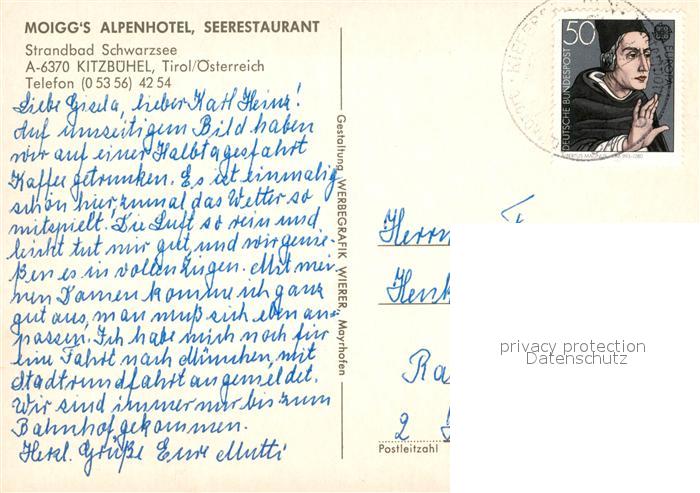 MOIGG'S ALPENHOTEL, SEERESTAURANT
Strandbad Schwarzsee
A-6370 KITZBÜHEL, Tirol/Österreich
Telefon (0 53 56) 42 54
Liebe Gisela, lieber Karl Heinz!
Auf umseitigem Bild haben
wir auf einer Halbtagesfahrt
Kaffee getrunken. Es ist einmalig
schön hier, zumal das Wetter so
mitspielt. Die Luft so rein und
leicht tut mir gut, und wir genie-
ßen es in vollen Zügen. Mit mei-
nen Damen komme ich ganz
gut aus, man muß sich eben an-
passen. Ich habe mich noch für
eine Fahrt nach München, mit
Stadtrundfahrt angemeldet.
Wir sind immer nur bis zum
Bahnhof gekommen.
Herzl. Grüße Eure Mutti
Gestaltung WERBEGRAFIK WIERER, Mayrhofen
50
EUROPA
DEUTSCHE BUNDESPOST
ALBERTUS MAGNUS 1193-1280
Herrn
Henk
Ra
2
Postleitzahl
privacy protection
Datenschutz